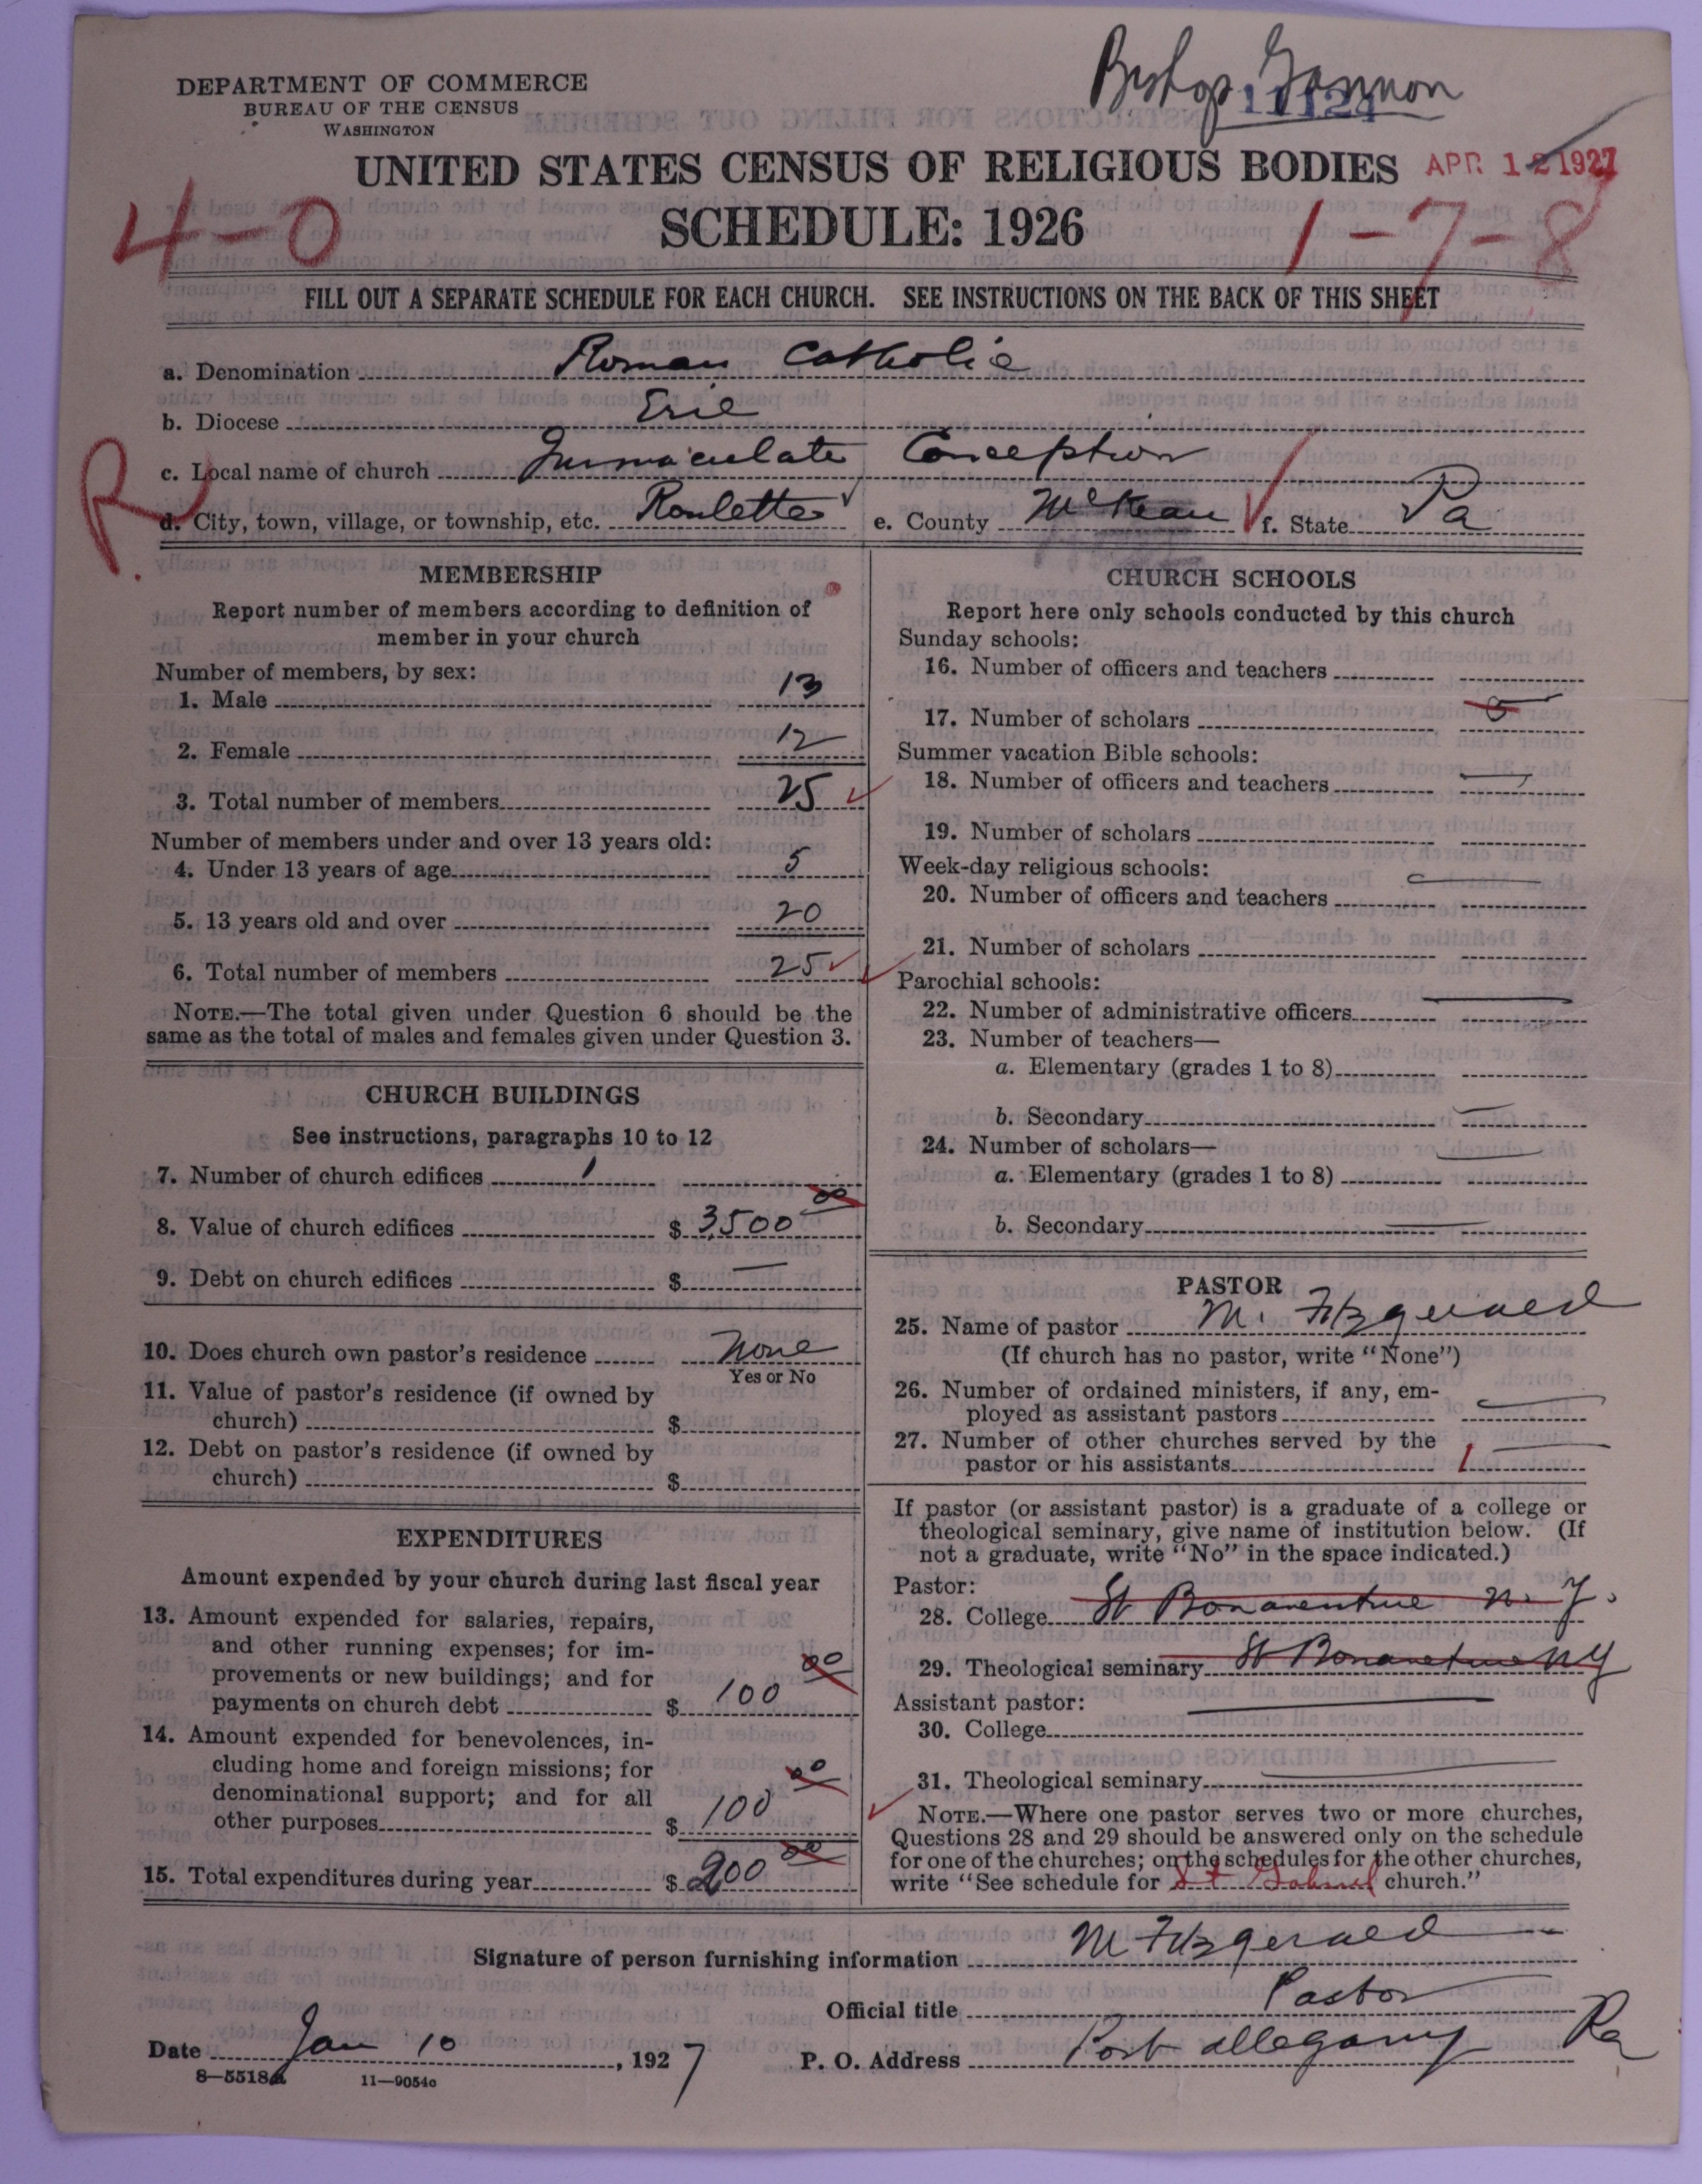 Bishop Gannon
11124
DEPARTMENT OF COMMERCE
BUREAU OF THE CENSUS
WASHINGTON
UNITED STATES CENSUS OF RELIGIOUS BODIES
APR 12 1927
4-0
SCHEDULE: 1926
1-7-8
FILL OUT A SEPARATE SCHEDULE FOR EACH CHURCH. SEE INSTRUCTIONS ON THE BACK OF THIS SHEET
a. Denomination Roman Catholic
b. Diocese Erie
c. Local name of church Immaculate Conception
R.
d. City, town, village, or township, etc. Roulette e. County McKean f. State Pa
MEMBERSHIP
Report number of members according to definition of
member in your church
Number of members, by sex:
1. Male 13
2. Female 12
3. Total number of members 25
Number of members under and over 13 years old:
4. Under 13 years of age 5
5. 13 years old and over 20
6. Total number of members 25
NOTE.—The total given under Question 6 should be the
same as the total of males and females given under Question 3.
CHURCH BUILDINGS
See instructions, paragraphs 10 to 12
7. Number of church edifices 1
8. Value of church edifices $ 3,500 00
9. Debt on church edifices $ —
10. Does church own pastor's residence None
Yes or No
11. Value of pastor's residence (if owned by
church) $
12. Debt on pastor's residence (if owned by
church) $
EXPENDITURES
Amount expended by your church during last fiscal year
13. Amount expended for salaries, repairs,
and other running expenses; for im-
provements or new buildings; and for
payments on church debt $ 100 00
14. Amount expended for benevolences, in-
cluding home and foreign missions; for
denominational support; and for all
other purposes $ 100 00
15. Total expenditures during year $ 200 00
CHURCH SCHOOLS
Report here only schools conducted by this church
Sunday schools:
16. Number of officers and teachers
17. Number of scholars 0
Summer vacation Bible schools:
18. Number of officers and teachers —
19. Number of scholars
Week-day religious schools:
20. Number of officers and teachers —
21. Number of scholars
Parochial schools:
22. Number of administrative officers —
23. Number of teachers—
a. Elementary (grades 1 to 8)
b. Secondary —
24. Number of scholars—
a. Elementary (grades 1 to 8) —
b. Secondary —
PASTOR
25. Name of pastor M. Fitzgerald
(If church has no pastor, write "None")
26. Number of ordained ministers, if any, em-
ployed as assistant pastors —
27. Number of other churches served by the
pastor or his assistants 1 —
If pastor (or assistant pastor) is a graduate of a college or
theological seminary, give name of institution below. (If
not a graduate, write "No" in the space indicated.)
Pastor:
28. College St Bonaventure N. Y.
29. Theological seminary St Bonaventure NY
Assistant pastor: —
30. College
31. Theological seminary —
NOTE.—Where one pastor serves two or more churches,
Questions 28 and 29 should be answered only on the schedule
for one of the churches; on the schedules for the other churches,
write "See schedule for St Gabriel church."
Signature of person furnishing information M Fitzgerald
Official title Pastor
Date Jan 10, 1927 P. O. Address Port Allegany Pa
8—5518a 11—9054o